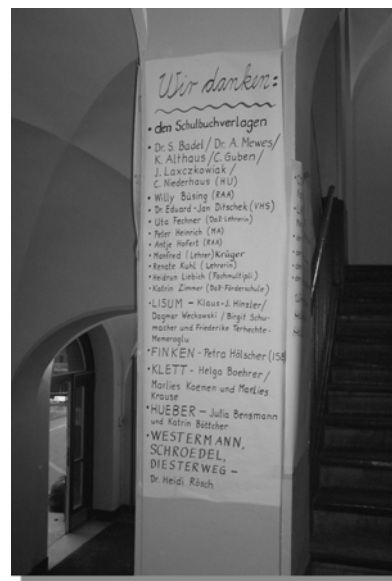 Wir danken:
• den Schulbuchverlagen
• Dr. S. Badel / Dr. A. Mewes /
K. Althaus / C. Guben /
J. Laxczkowiak /
C. Niederhaus (HU)
• Willy Büsing (RAA)
• Dr Eduard-Jan Ditschek (VHS)
• Uta Fechner (DaZ-Lehrerin)
• Peter Heinrich (MA)
• Antje Hofert (RAA)
• Manfred (Lehrer) Krüger
• Renate Kuhl (Lehrerin)
• Heidrun Liebich (Fachmultipli.)
• Katrin Zimmer (DaZ-Förderschule)
• LISUM – Klaus-J. Hinzler/
Dagmar Weckowski / Birgit Schu-
macher und Friederike Terhechte-
Memeroglu
• FINKEN – Petra Hölscher (ISB)
• KLETT – Helga Boehrer/
Marlies Koenen und Marlies
Krause
• HUEBER – Julia Bensmann
und Katrin Böttcher
• WESTERMANN,
SCHROEDEL,
DIESTERWEG –
Dr. Heidi Rösch